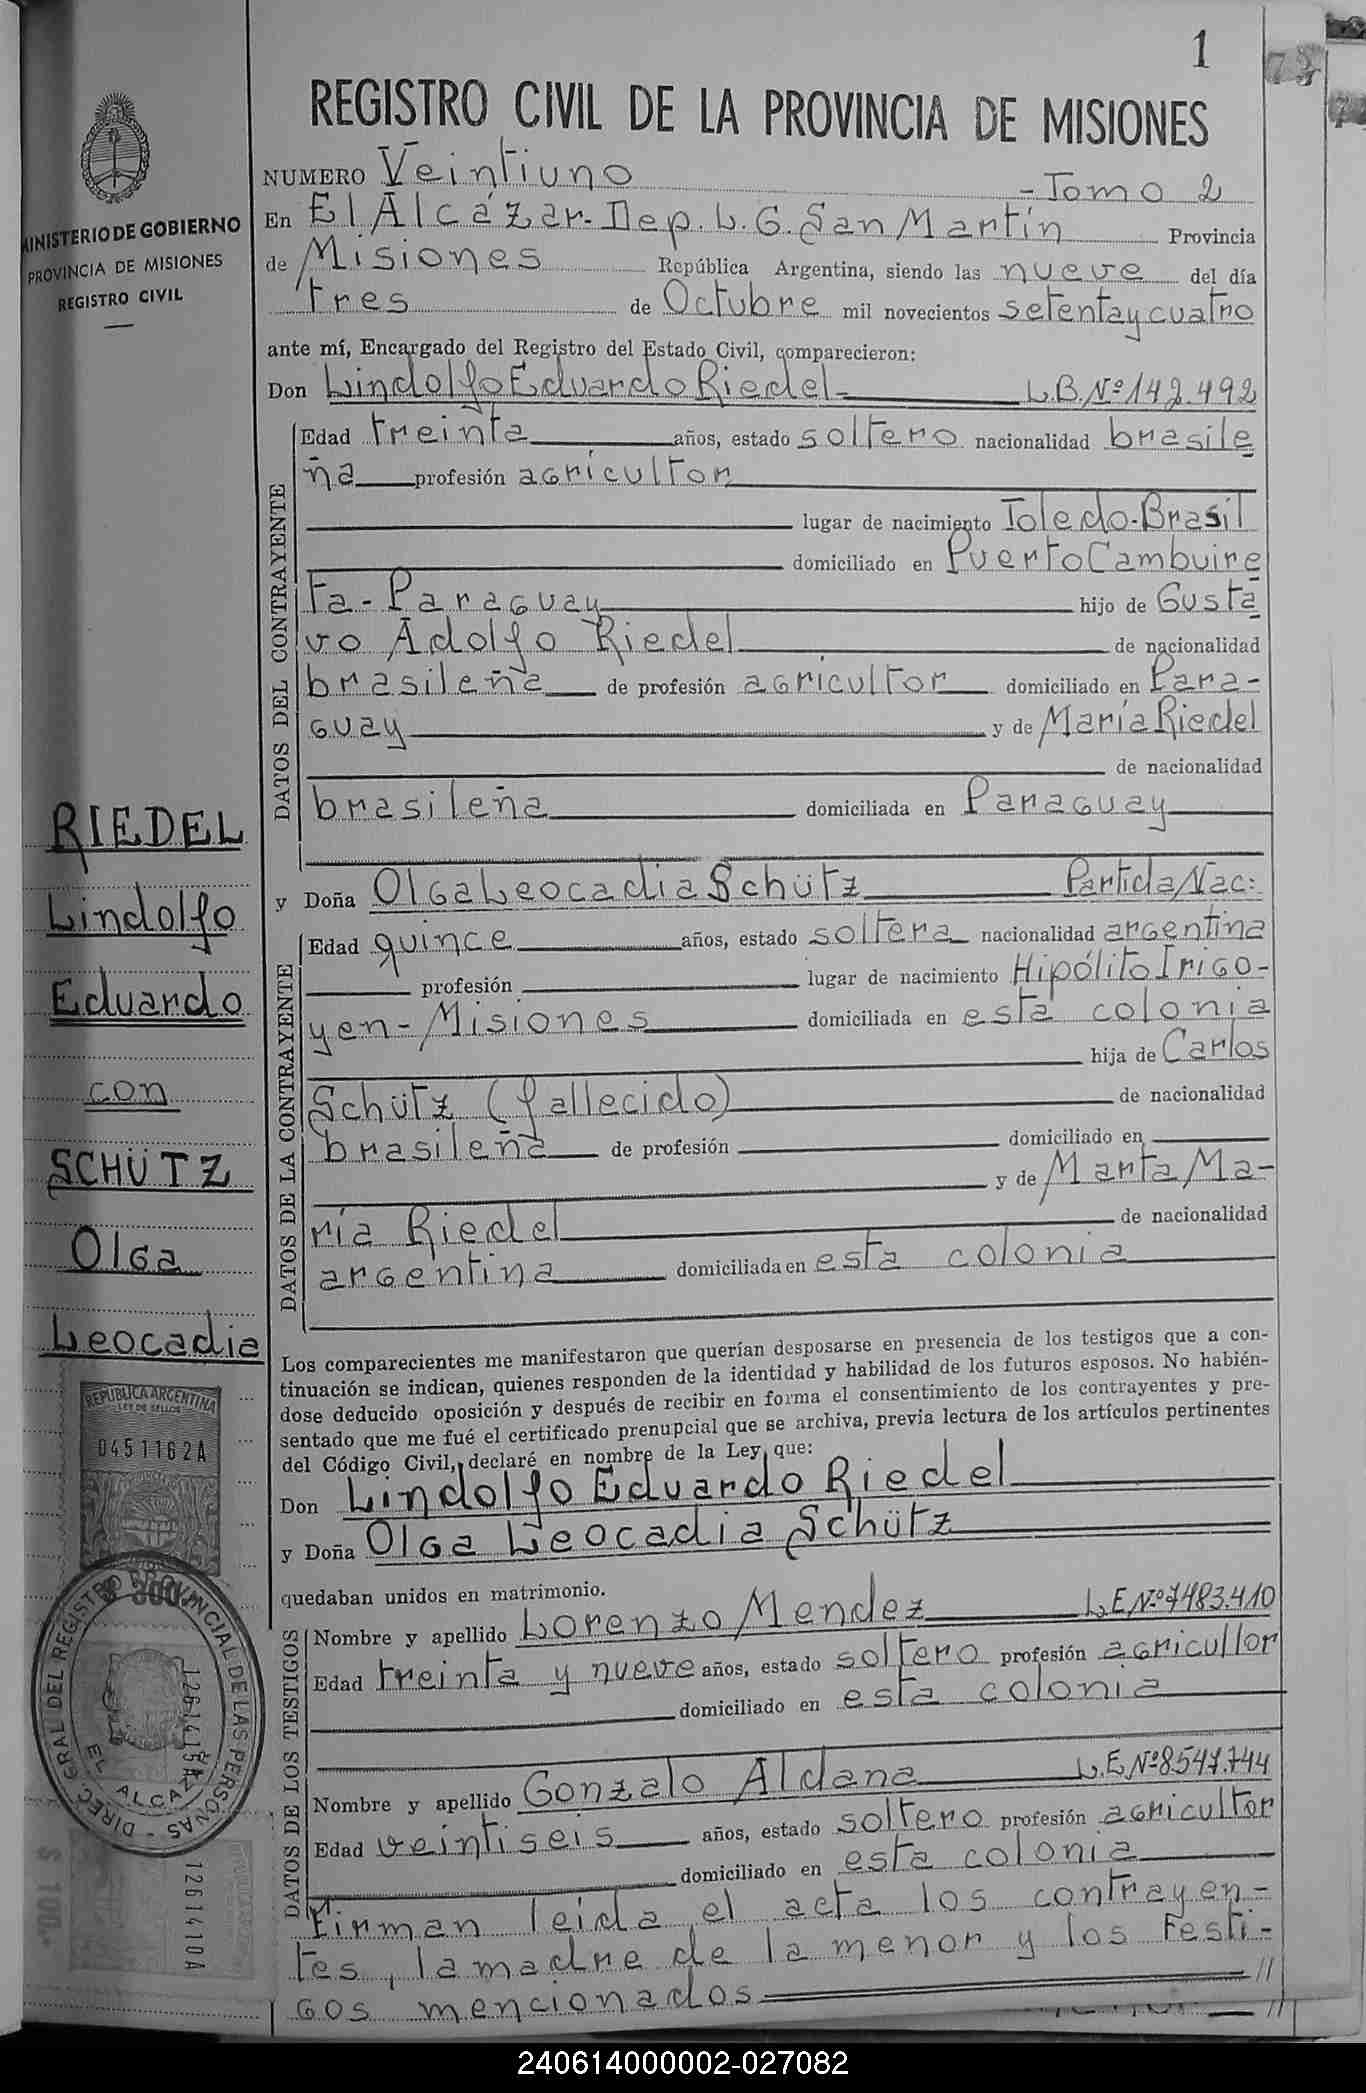 1
REGISTRO CIVIL DE LA PROVINCIA DE MISIONES
MINISTERIO DE GOBIERNO
PROVINCIA DE MISIONES
REGISTRO CIVIL
NUMERO Veintiuno - Tomo 2
En El Alcázar- Dep. L. G. San Martín Provincia
de Misiones República Argentina, siendo las nueve del día
tres de Octubre mil novecientos setenta y cuatro
ante mí, Encargado del Registro del Estado Civil, comparecieron:
Don Lindolfo Eduardo Riedel- L.B. Nº 142.492
DATOS DEL CONTRAYENTE
Edad treinta años, estado soltero nacionalidad brasile
ña profesión agricultor
lugar de nacimiento Toledo-Brasil
domiciliado en Puerto Cambuire
Ta- Paraguay hijo de Gusta
vo Adolfo Riedel de nacionalidad
brasileña de profesión agricultor domiciliado en Para-
guay y de María Riedel
de nacionalidad
brasileña domiciliada en Paraguay
y Doña Olga Leocadia Schütz Partida Nac:
DATOS DE LA CONTRAYENTE
Edad quince años, estado soltera nacionalidad argentina
profesión lugar de nacimiento Hipólito Irigo-
yen- Misiones domiciliada en esta colonia
hija de Carlos
Schütz (fallecido) de nacionalidad
brasileña de profesión domiciliado en
y de Marta Ma-
ría Riedel de nacionalidad
argentina domiciliada en esta colonia
RIEDEL
Lindolfo
Eduardo
con
SCHÜTZ
Olga
Leocadia
Los comparecientes me manifestaron que querían desposarse en presencia de los testigos que a con-
tinuación se indican, quienes responden de la identidad y habilidad de los futuros esposos. No habién-
dose deducido oposición y después de recibir en forma el consentimiento de los contrayentes y pre-
sentado que me fué el certificado prenupcial que se archiva, previa lectura de los artículos pertinentes
del Código Civil, declaré en nombre de la Ley que:
Don Lindolfo Eduardo Riedel
y Doña Olga Leocadia Schütz
quedaban unidos en matrimonio.
DATOS DE LOS TESTIGOS
Nombre y apellido Lorenzo Mendez L.E Nº 7483.410
Edad treinta y nueve años, estado soltero profesión agricultor
domiciliado en esta colonia
Nombre y apellido Gonzalo Aldana L.E. Nº 8.547.744
Edad veintiseis años, estado soltero profesión agricultor
domiciliado en esta colonia
Firman leida el acta los contrayen-
tes, la madre de la menor y los testi-
gos mencionados //
REPUBLICA ARGENTINA
LEY DE SELLOS
0451162A
DIREC. GRAL DEL REGISTRO PROVINCIAL DE LAS PERSONAS -
EL ALCAZAR
$ 100.-
1261410A
240614000002-027082